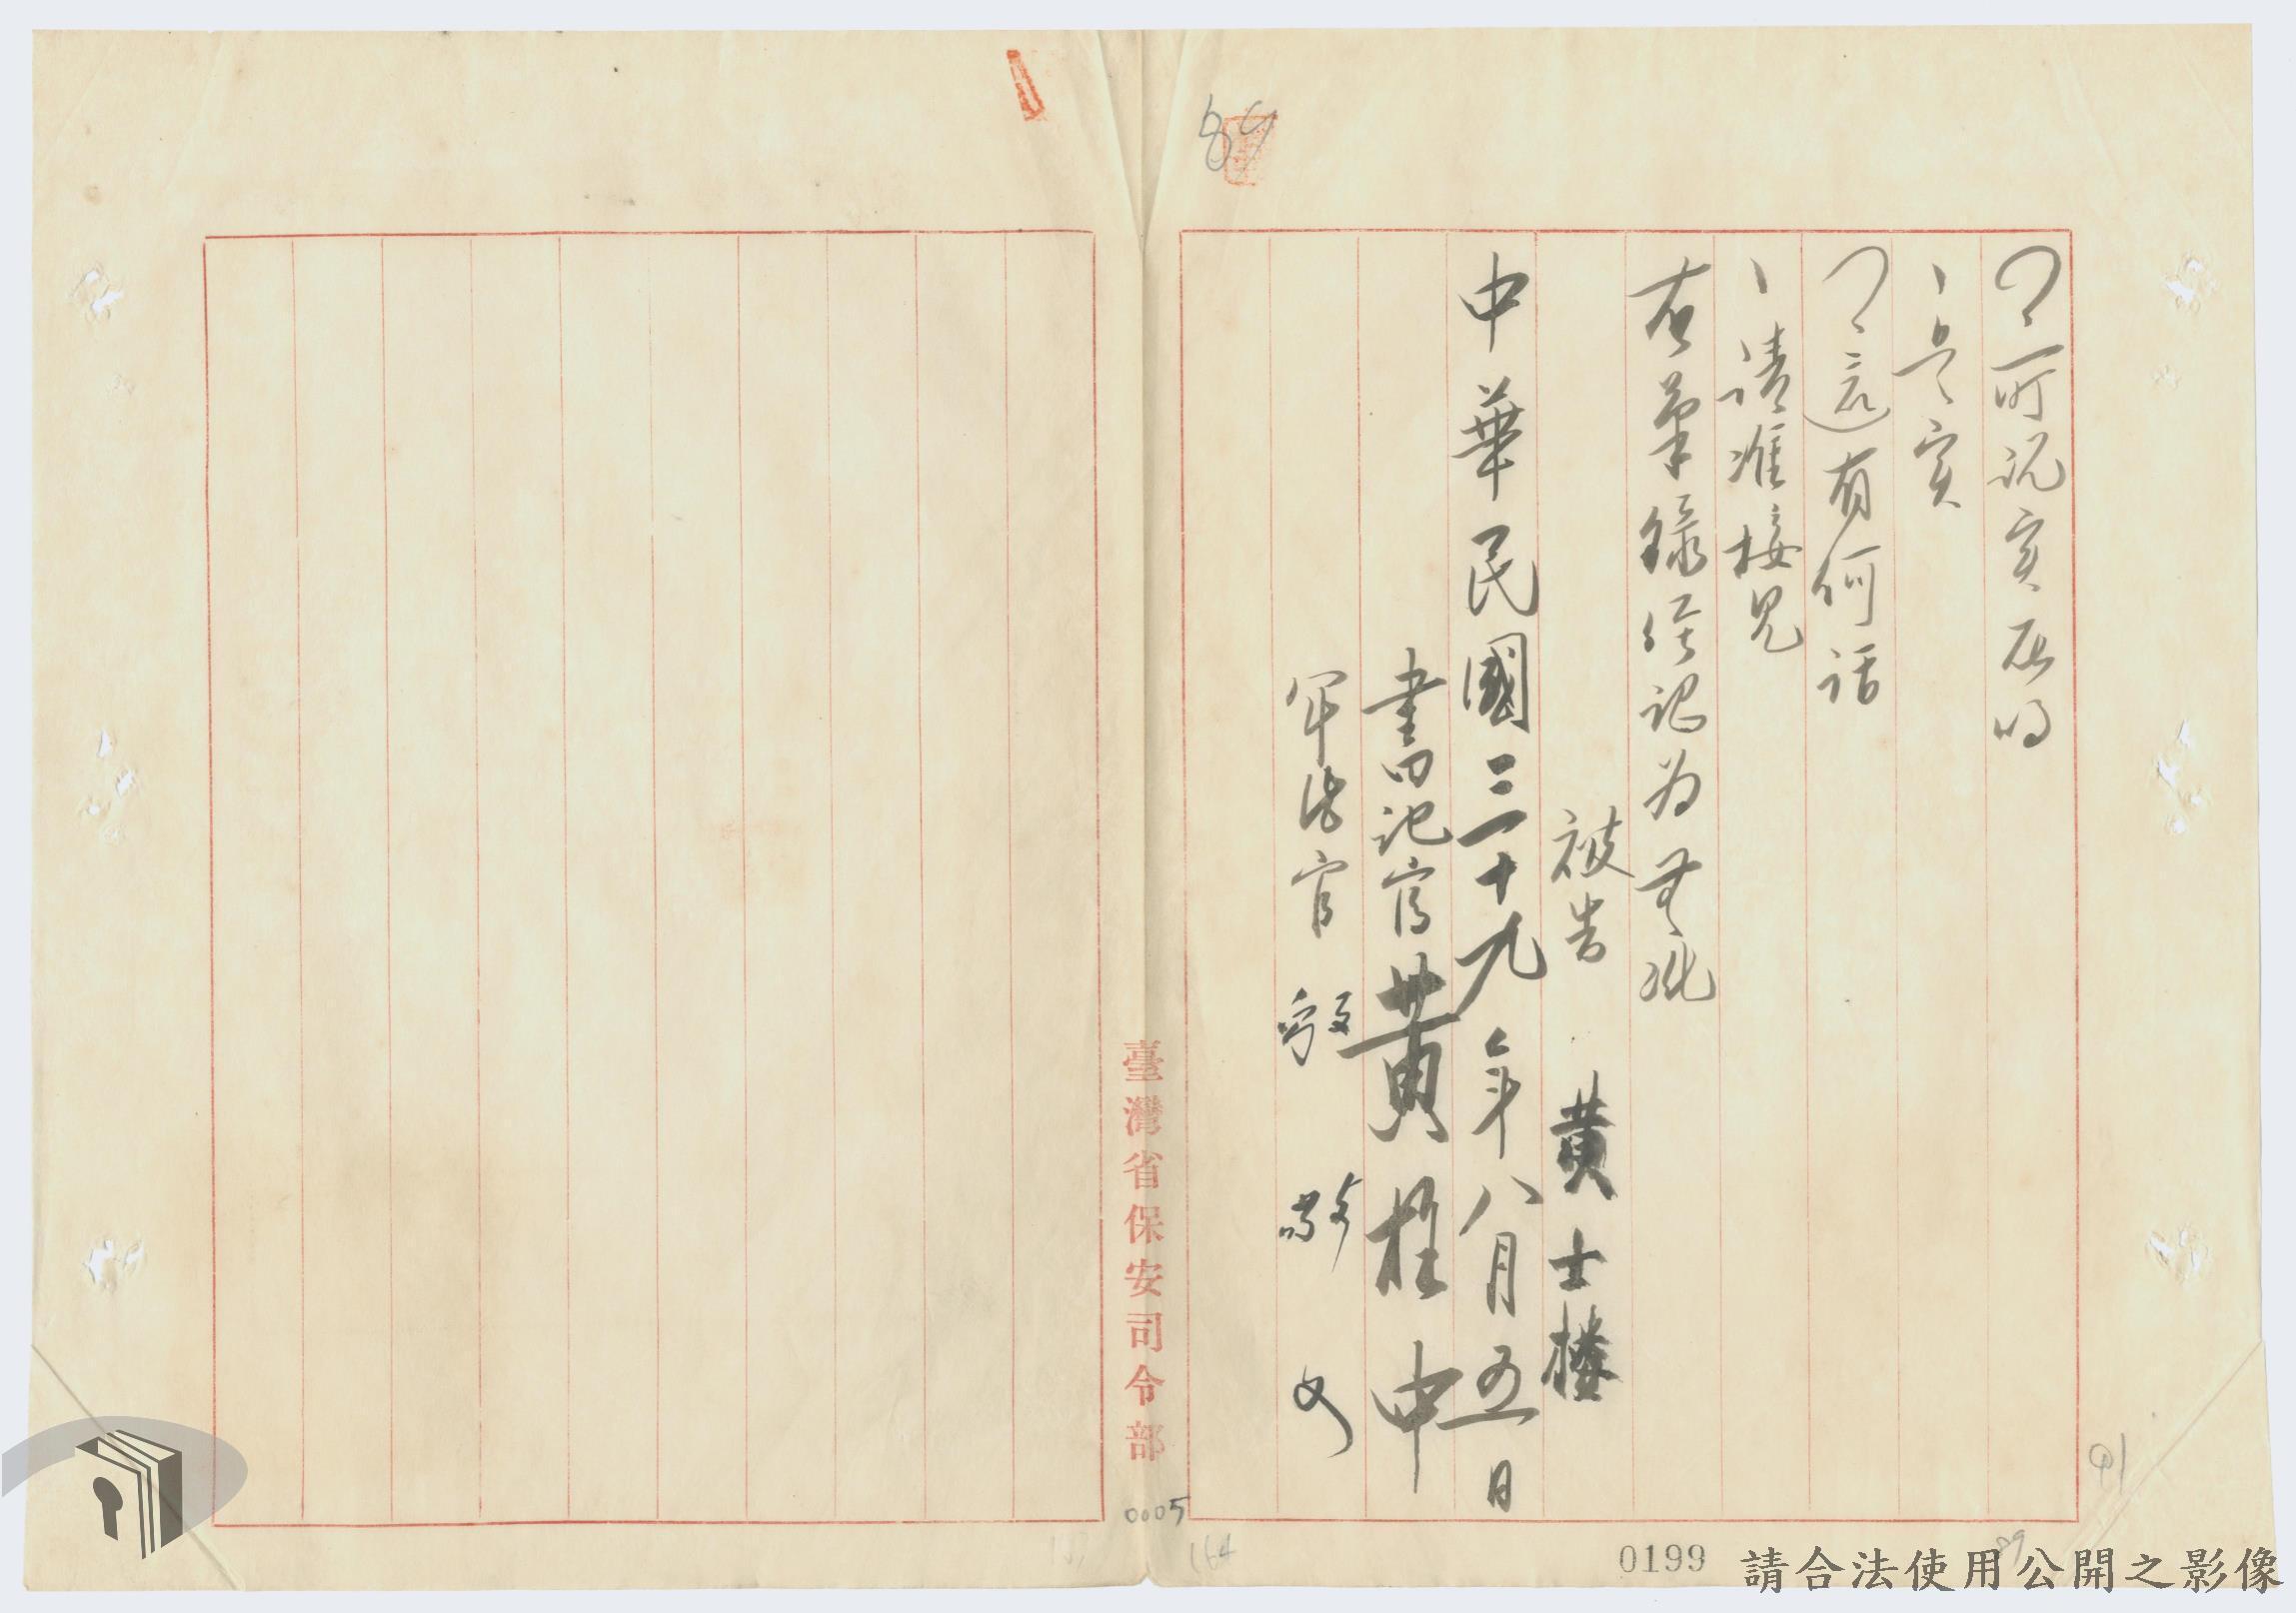 所說实在的
是实
還有何話
請准接見
右筆錄経認為無訛
被告 黃士樓
中華民國三十九年八月五日
書記官 黃桂申
軍法官 殷敬文
臺灣省保安司令部
0005
164
0199
91
89
請合法使用公開之影像